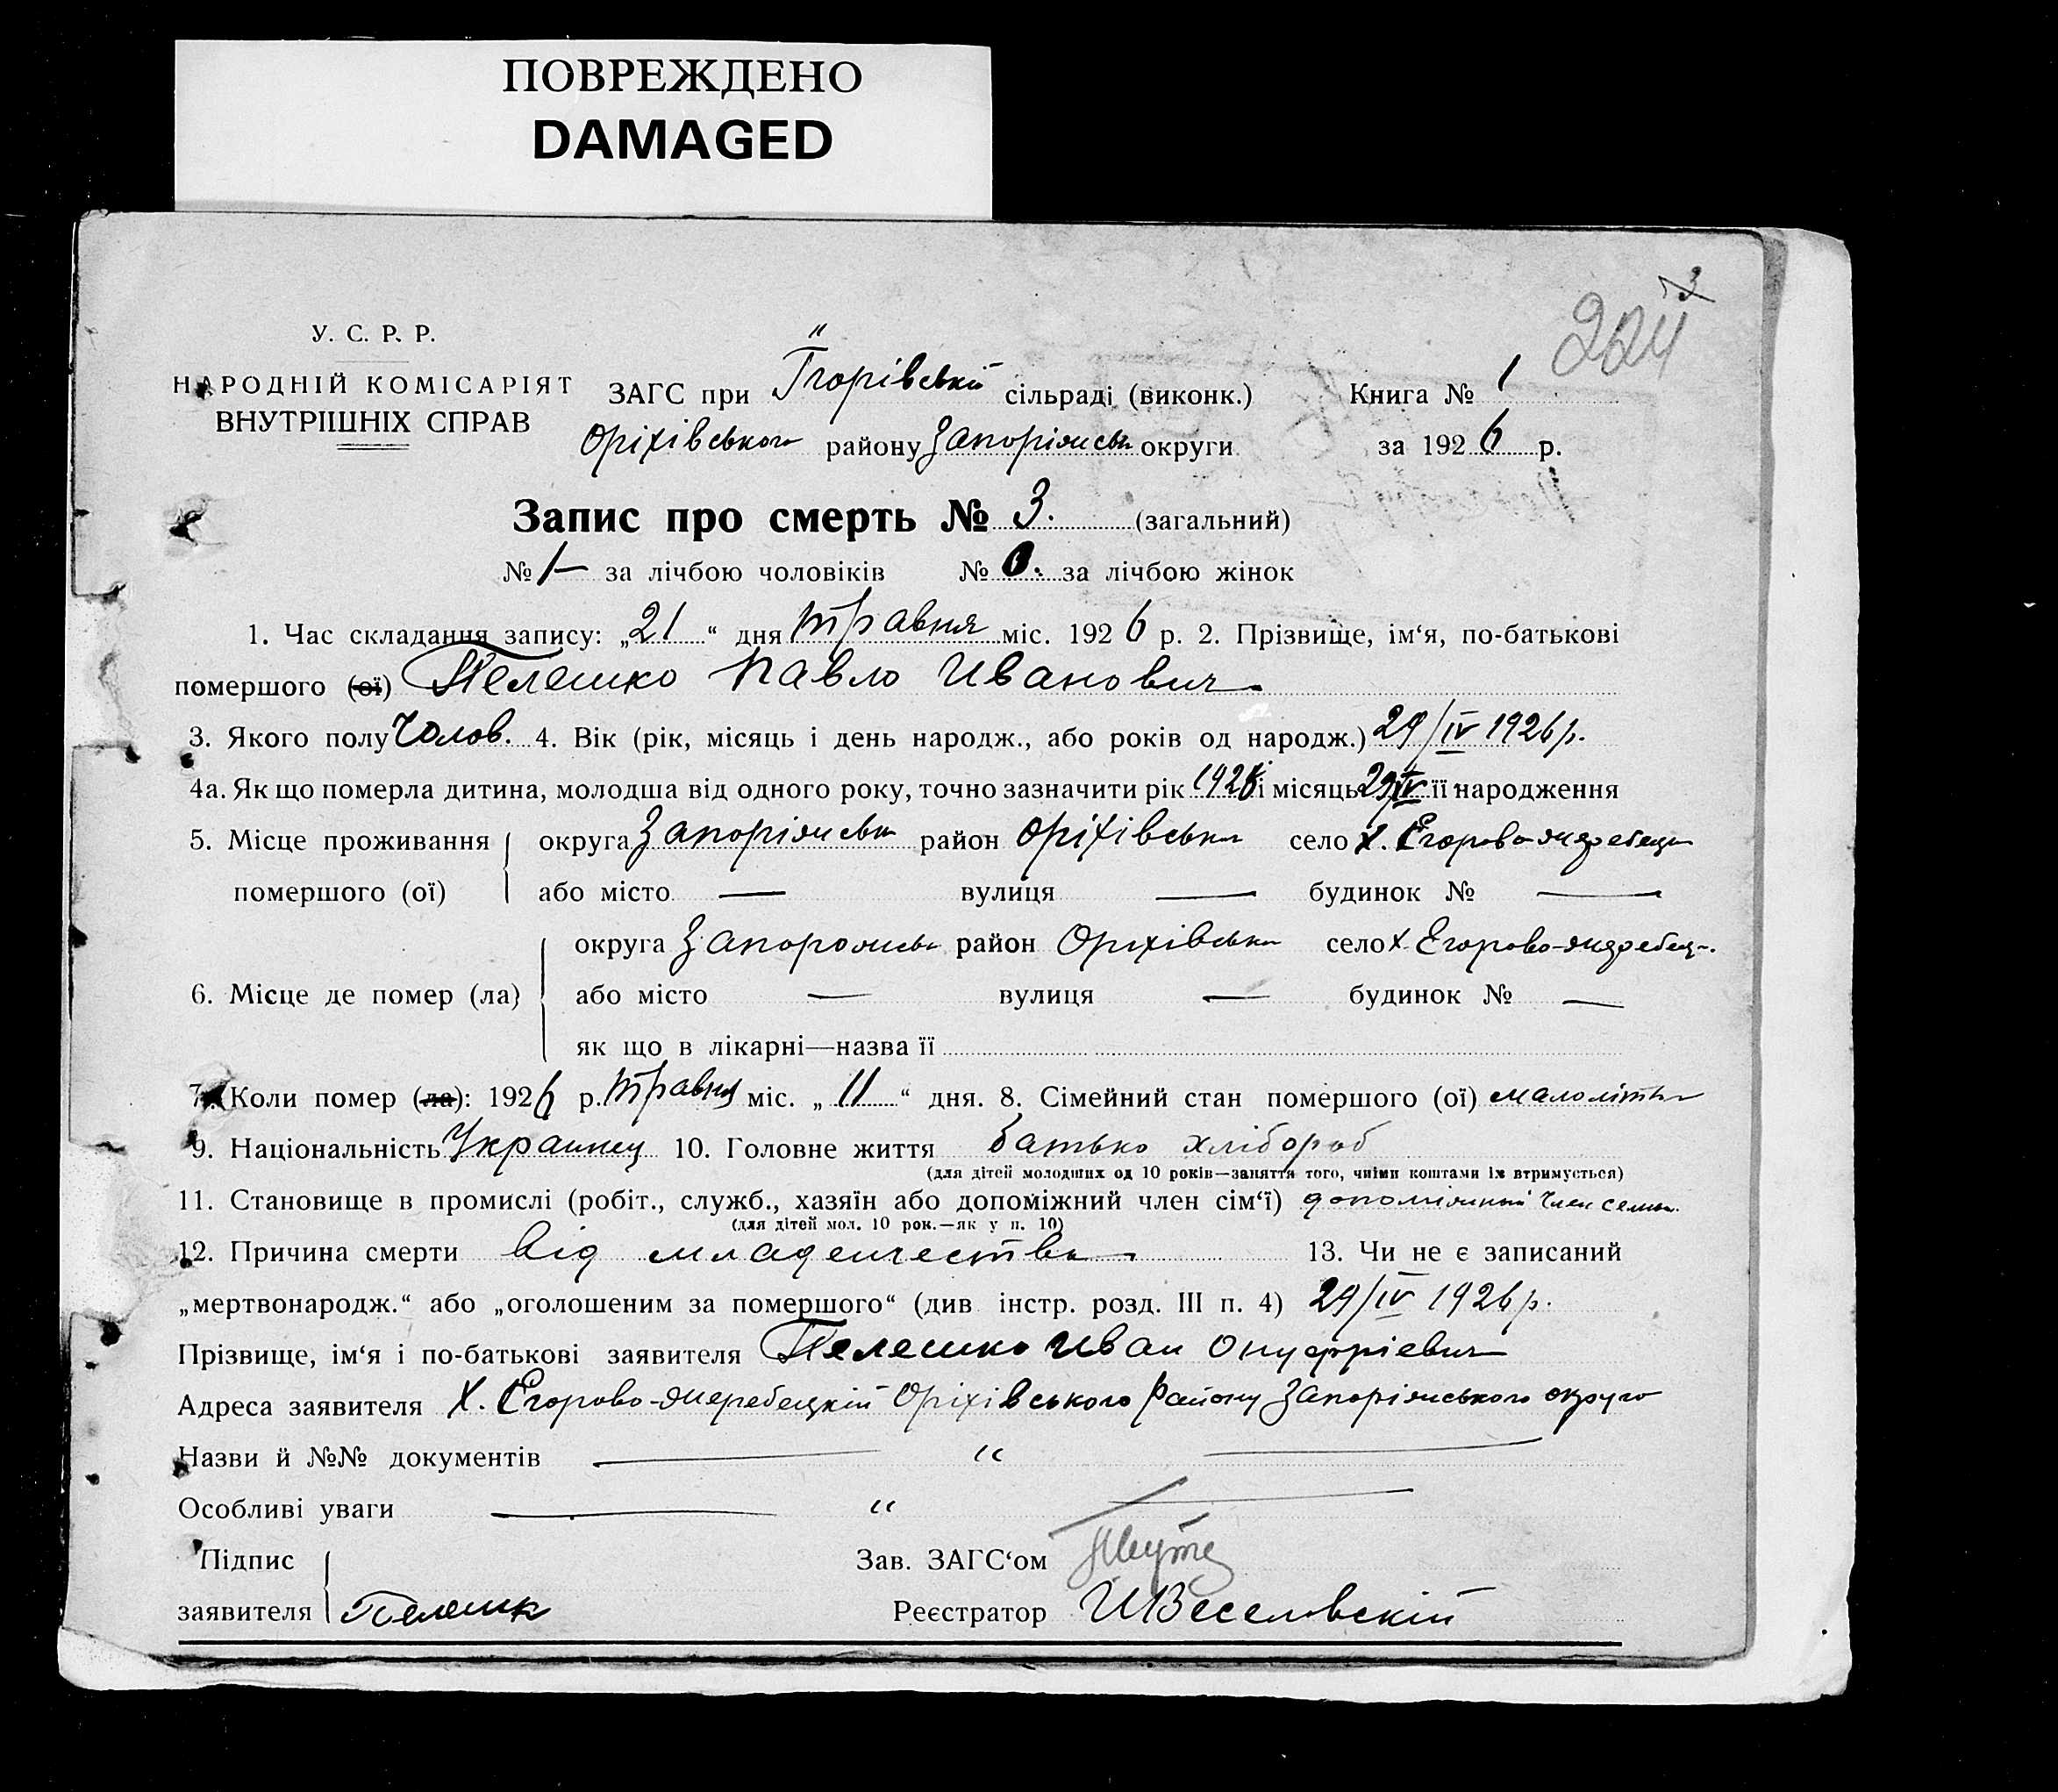 ПОВРЕЖДЕНО
DAMAGED
У. С. Р. Р.
НАРОДНІЙ КОМІСАРІЯТ
ВНУТРІШНІХ СПРАВ
ЗАГС при Ігорівській сільраді (виконк.) Книга № 1
Оріхівського району Запоріжськ округи за 1926 р.
224
3
Запис про смерть № 3. (загальний)
№ 1 за лічбою чоловіків № 0. за лічбою жінок
1. Час складання запису: „21“ дня травня міс. 1926 р. 2. Прізвище, ім‘я, по-батькові
помершого (ої) Пелешко Павло Иванович
3. Якого полу Чолов. 4. Вік (рік, місяць і день народж., або років од народж.) 29/IV 1926 р.
4а. Як що померла дитина, молодша від одного року, точно зазначити рік 1926 і місяць 29/IV її народження
5. Місце проживання округа Запоріжськ район Оріхівськ село х. Егорово-жеребецк
помершого (ої) або місто — вулиця — будинок № —
округа Запорожськ район Оріхівськ село х. Егорово-жеребец-.
6. Місце де помер (ла) або місто — вулиця — будинок № —
як що в лікарні—назва її
7. Коли помер (ла): 1926 р. травня міс. „11“ дня. 8. Сімейний стан помершого (ої) малолітн
9. Національність Украинец 10. Головне життя батько хлібороб
(для дітей молодших од 10 років—заняття того, чиїми коштами їх втримується)
11. Становище в промислі (робіт., служб., хазяїн або допоміжний член сім‘ї) допоміжний член семьи.
(для дітей мол. 10 рок.—як у п. 10)
12. Причина смерти від младенчества 13. Чи не є записаний
„мертвонародж.“ або „оголошеним за помершого“ (див. інстр. розд. III п. 4) 29/IV 1926 р.
Прізвище, ім‘я і по-батькові заявителя Пелешко Иван Онуфріевич
Адреса заявителя Х. Егорово-жеребецкій Оріхівського району Запоріжського округо
Назви й №№ документів — “ —
Особливі уваги — “ —
Підпис Зав. ЗАГС‘ом
заявителя Пелешк Реєстратор И Веселовскій